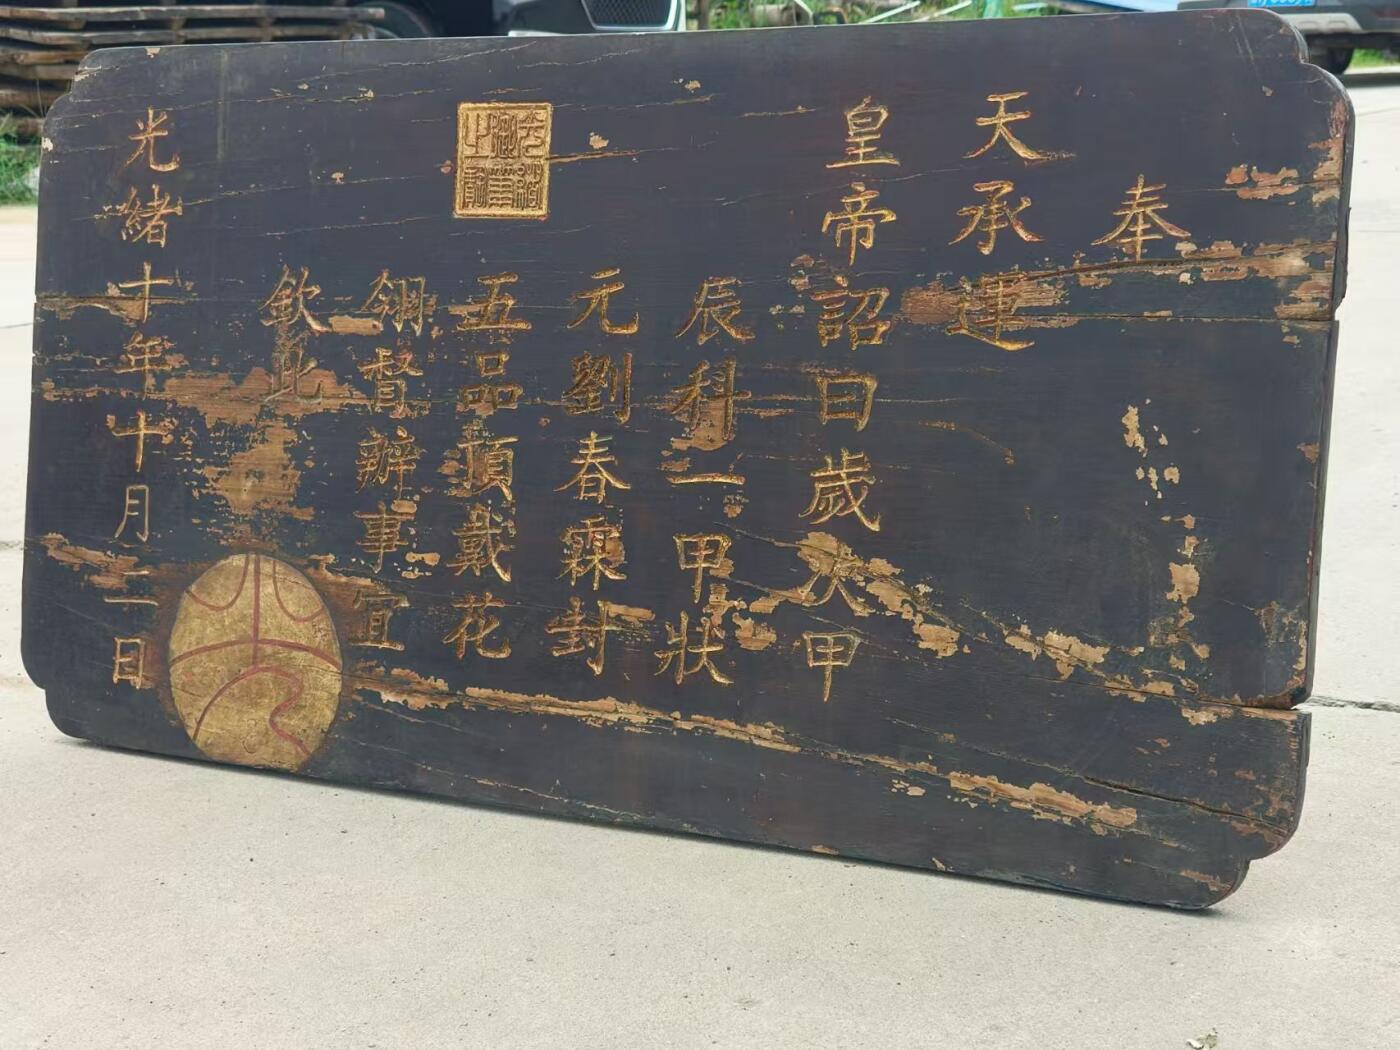 奉
天承運
皇帝詔曰歲次甲
辰科一甲狀
元劉春霖封
五品頂戴花
翎督辦事宜
欽此
光緒御筆之寶
光緒十年十月二日